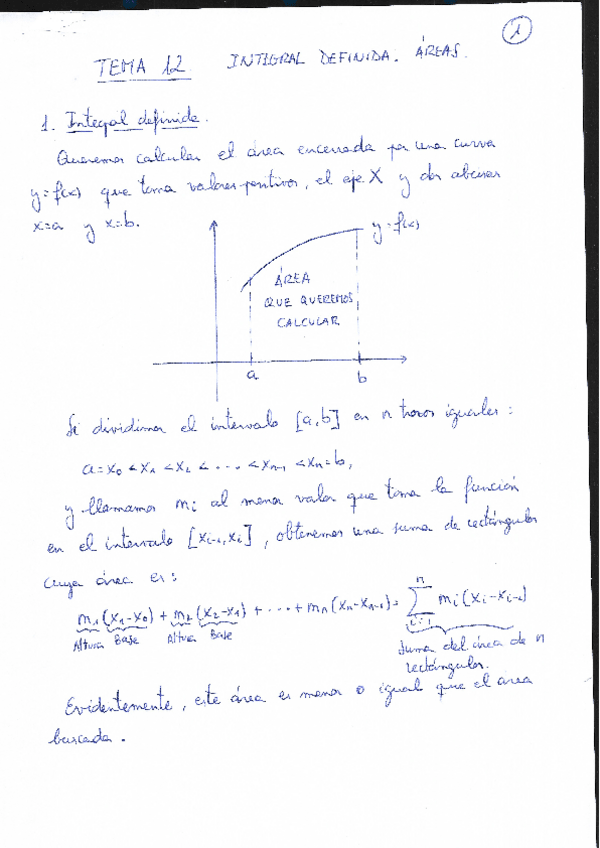 1
TEMA 12 INTEGRAL DEFINIDA. ÁREAS.
1. Integral definida.
Queremos calcular el área encerrada por una curva
y=f(x) que toma valores positivos, el eje X y dos abcisas
x=a y x=b.
y=f(x)
ÁREA
QUE QUEREMOS
CALCULAR
a b
Si dividimos el intervalo [a,b] en n trozos iguales:
a=x₀<x₁<x₂<...<xₙ₋₁<xₙ=b,
y llamamos mᵢ al menor valor que toma la función
en el intervalo [xᵢ₋₁,xᵢ], obtenemos una suma de rectángulos
cuya área es:
m₁(x₁-x₀)+m₂(x₂-x₁)+...+mₙ(xₙ-xₙ₋₁)=∑ⁿᵢ₌₁ mᵢ(xᵢ-xᵢ₋₁)
Altura Base Altura Base
Suma del área de n
rectángulos.
Evidentemente, este área es menor o igual que el área
buscada.